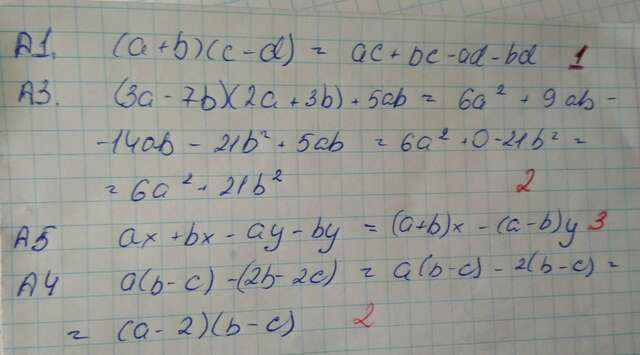 A1. (a+b)(c-d) = ac+bc-ad-bd 1
A3. (3a-7b)(2a+3b)+5ab = 6a²+9ab-
-14ab-21b²+5ab = 6a²+0-21b² =
= 6a²+21b² 2
A5 ax+bx-ay-by = (a+b)x-(a-b)y 3
A4 a(b-c)-(2b-2c) = a(b-c)-2(b-c) =
= (a-2)(b-c) 2